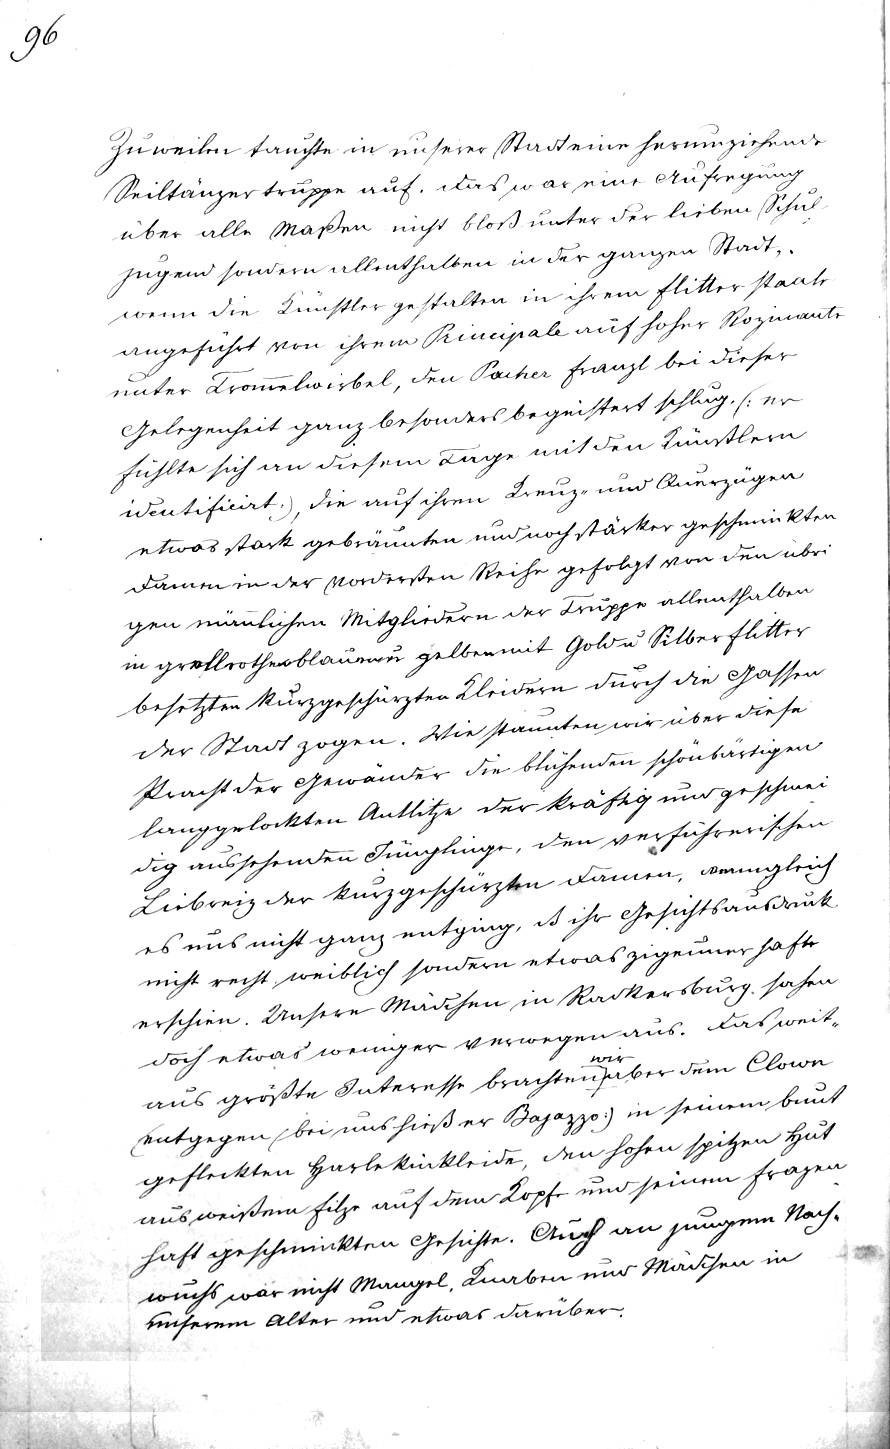 96
Zuweilen tauchte in unserer Stadt eine herumziehende
Seiltänzertruppe auf. Das war eine Aufregung
über alle Maßen nicht bloß unter der lieben Schul
jugend sondern allenthalben in der ganzen Stadt,
wenn die Künstlergestalten in ihrem Flitterstaate
angeführt von ihrem Principale auf hoher Rozinante
unter Trom̄elwirbel, den Pacher Franzl bei dieser
Gelegenheit ganz besonders begeistert schlug. (: er
fühlte sich an diesem Tage mit den Künstlern
identificirt:), die auf ihren Kreuz- und Querzügen
etwas stark gebräunten und noch stärker geschminkten
Damen in der vordersten Reihe gefolgt von den übri
gen män̄lichen Mitgliedern der Truppe allenthalben
in grellrothen blauen gelben mit Gold u Silberflitter
besetzten kurzgeschürzten Kleidern durch die Gassen
der Stadt zogen. Wie staunten wir über diese
Pracht der Gewänder die blühenden schönbärtigen
langgelockten Antlitze der kräftig und geschmei
dig aussehenden Jünglinge, den verführerischen
Liebreiz der kurzgeschürzten Damen, wenngleich
es uns nicht ganz entging, dß ihr Gesichtsausdruck
nicht recht weiblich sondern etwas zigeunerhaft
erschien. Unsere Mädchen in Radkersburg sahen
doch etwas weniger verwegen aus. Das weit-
aus größte Interesse brachten wir aber dem Clown
entgegen (bei uns hieß er Bajazzo:) in seinem bunt
gefleckten Harlekinkleide, den hohen spitzen Hut
aus weißem Filze auf dem Kopfe und seinem frazen
haft geschminkten Gesichte. Auch an jungem Nach-
wuchs war nicht Mangel, Knaben und Mädchen in
unserem Alter und etwas darüber.